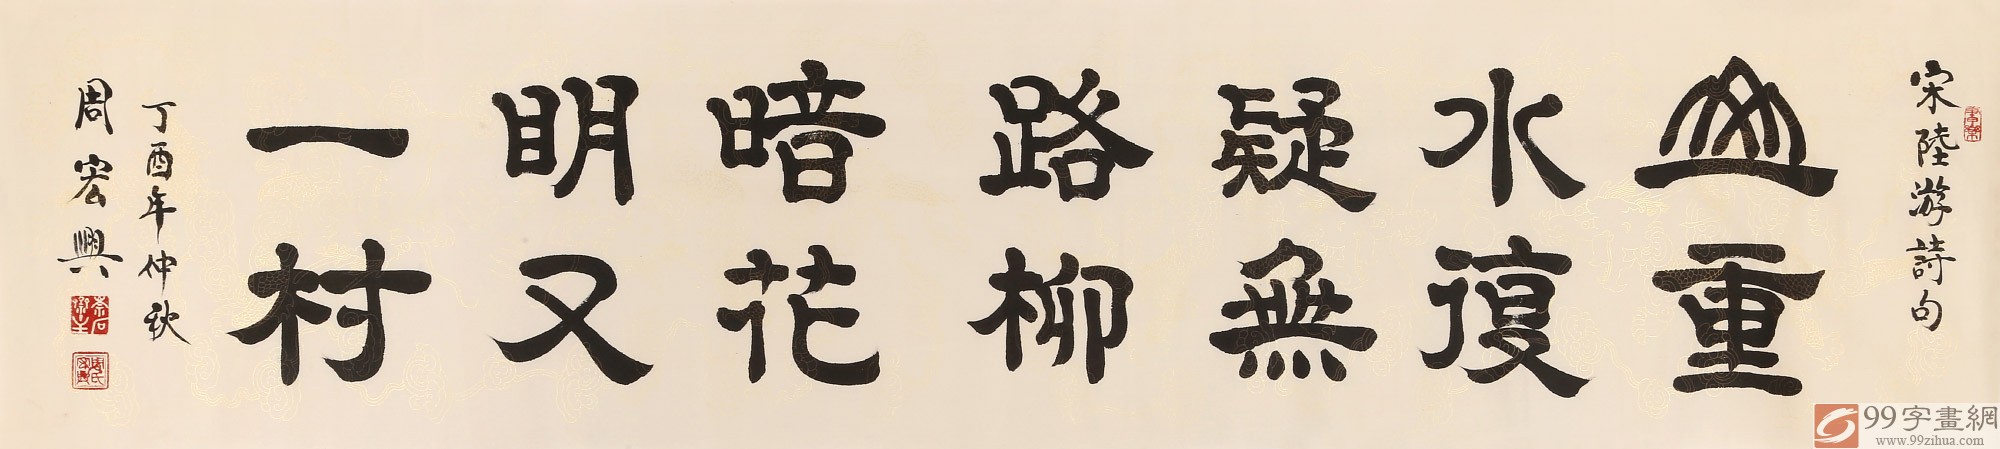 宋陸游詩句
山重
水復
疑無
路柳
暗花
明又
一村
丁酉年仲秋
周宏興
99字畫網
www.99zihua.com